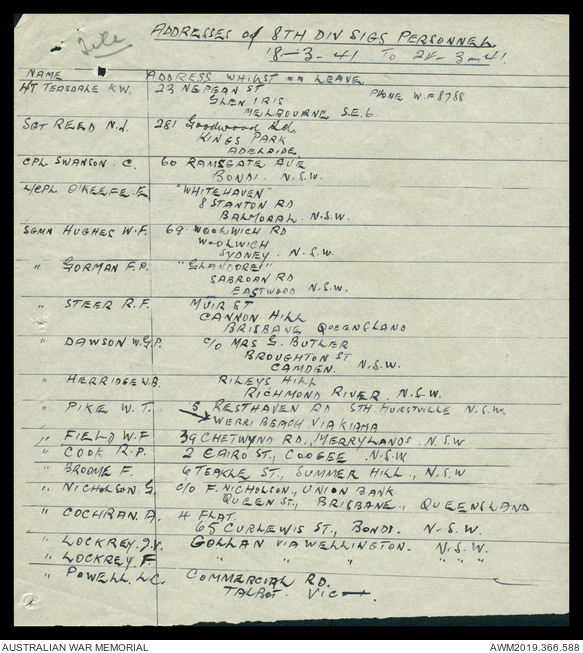 File
ADDRESSES of 8TH DIV SIGS PERSONNEL
18-3-41 TO 24-3-41.
NAME ADDRESS WHILST ON LEAVE
TEASDALE K.W. 23 NEPEAN ST PHONE W.F 8788
GLEN IRIS
MELBOURNE S.E.6.
SGT REED N.J. 281 Goodwood Rd,
KINGS PARK
ADELAIDE
CPL SWANSON. C. 60 RAMSGATE AVE
BONDI. N.S.W.
L/CPL O'KEEFE. E. "WHITEHAVEN"
8 STANTON RD
BALMORAL. N.S.W.
SGMN HUGHES W.F. 69 WOOLWICH RD
WOOLWICH
SYDNEY. N.S.W.
" GORMAN F.P. "GLANDORE"
SABROAN RD
EASTWOOD N.S.W.
" STEER R.F. MUIR ST
CANNON HILL
BRISBANE QUEENSLAND
" DAWSON W.G.P. C/O MRS G. BUTLER
BROUGHTON ST
CAMDEN. N.S.W.
" HERRIDGE W.B. RILEYS HILL
RICHMOND RIVER. N.S.W.
" PIKE W.T. 5 RESTHAVEN RD STH. HURSTVILLE N.S.W.
WERRI BEACH VIA KIAMA
" FIELD W.F 39 CHETWYND RD., MERRYLANDS. N.S.W
" COOK R.P. 2 CAIRO ST., COOGEE. N.S.W.
" BROOME F. 6 TEAKLE ST., SUMMER HILL., N.S.W
" NICHOLSON G. C/O F. NICHOLSON., UNION BANK
QUEEN ST., BRISBANE., QUEENSLAND
" COCHRAN. A. 4 FLAT.
65 CURLEWIS ST., BONDI. N.S.W.
" LOCKREY. J.V. GOLLAN VIA WELLINGTON. N.S.W.
" LOCKREY. F. " " " "
" POWELL. L.C. COMMERCIAL RD.
TALBOT. VIC
AUSTRALIAN WAR MEMORIAL AWM2019.366.588